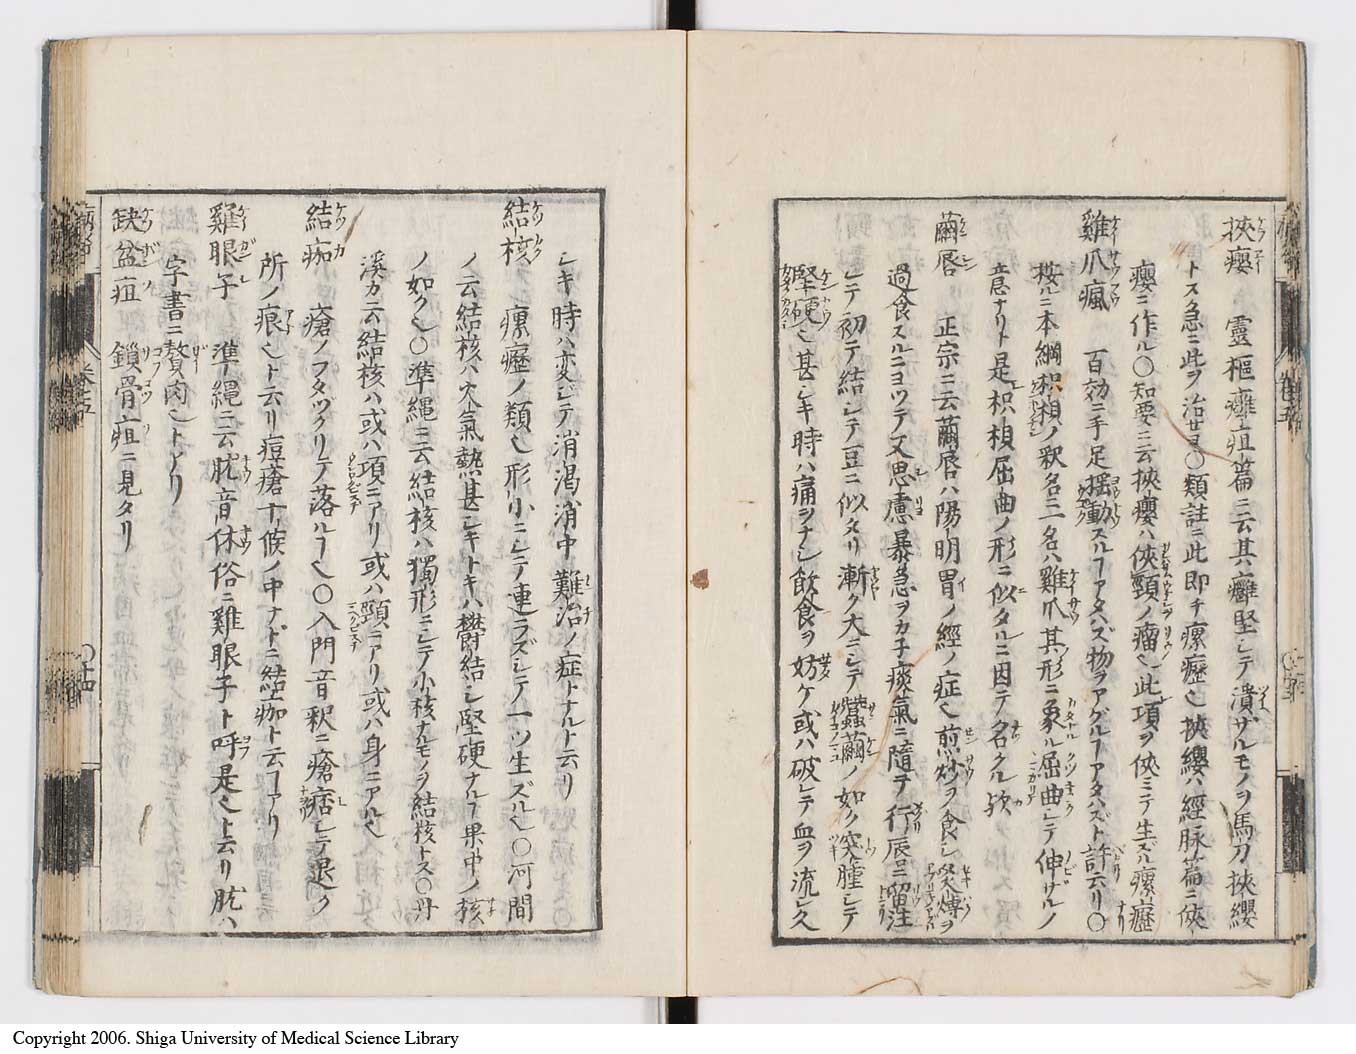 挾癭 靈樞癰疽篇ニ云其ノ癰堅シテ潰ザルモノヲ馬刀挾纓
トス急ニ此ヲ治せヨ〇類註ニ此即チ瘰癧也挾纓ハ經脉篇ニ俠
癭ニ作ル〇知要ニ云挾癭ハ俠頸ノ瘤也此項ヲ俠ミテ生ズル瘰癧ナリ
雞爪瘋 百効ニ手足揺動スルヿアタハズ物ヲアグルヿアタハズト許云リ〇
按ルニ本綱枳椇ノ釈名ニ一名ハ雞爪其形ニ象ル屈曲シテ伸ザルノ
意ナリト是枳椇屈曲ノ形ニ似タルニ因テ名クル欤
繭唇 正宗ニ云繭唇ハ陽明胃ノ經ノ症也煎炒ヲ食シ炙煿ヲ
過食スルニヨツテ又思慮暴急ヲカ子痰氣ニ隨テ行唇ニ留注
シテ初テ結シテ豆ニ似タリ漸ク大ニシテ蠶繭ノ如ク突腫シテ
堅硬也甚シキ時ハ痛ヲナシ飲食ヲ妨ケ或ハ破レテ血ヲ流シ久
シキ時ハ変シテ消渇消中難治ノ症トナルト云リ
結核 瘰癧ノ類也形小ニシテ連ラズシテ一ツ生ズル也〇河間
ノ云結核ハ火氣熱甚シキトキハ鬱結シ堅硬ナルヿ果中ノ核
ノ如ク也〇準縄ニ云結核ハ獨形ニシテ小核ナルモノヲ結核トス〇丹
溪カ云結核ハ或ハ項ニアリ或ハ頸ニアリ或ハ身ニアル也
結痂 瘡ノフタツクリテ落ルヿ也〇入門音釈ニ瘡痞シテ退ク
所ノ痕也ト云リ痘瘡十候ノ中ナドニ結痂ト云ヿアリ
雞眼子 準縄ニ云肬音休俗ニ雞眼子ト呼是也ト云リ肬ハ
字書ニ贅肉也トアリ
缺盆疽 鎖骨疽ニ見タリ
卷之五
〇十四